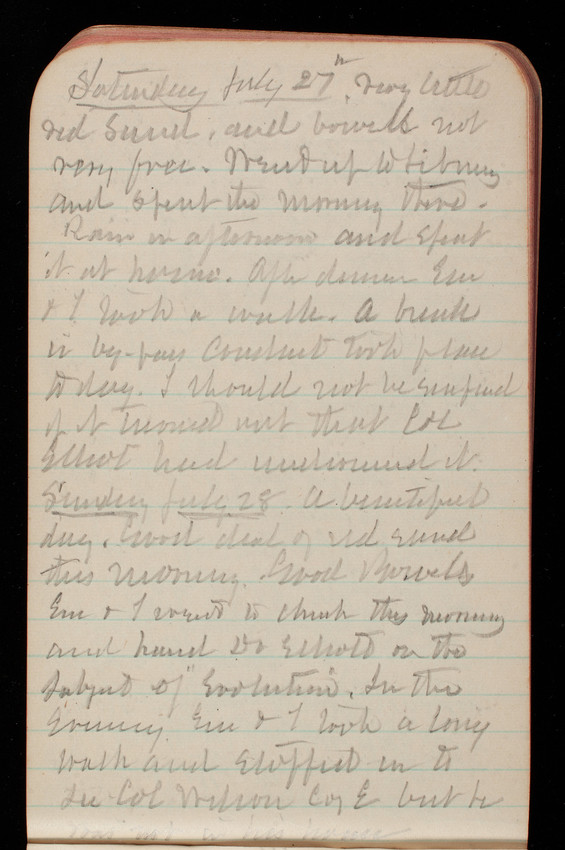 Saturday July 27th. very little
red sand, and bowels not
very free. Went up to Library
and spent the morning there.
Rain in afternoon and spent
it at home. After dinner Em
& I took a walk. A break
in by-pass conduit took place
to day. I should not be surprised
if it turned out that Col
Elliot had undermined it.
Sunday July 28. A beautiful
day. Good deal of red sand
this morning. Good Bowels
Em & I went to church this morning
and heard Dr Elliott on the
subject of "Evolution". In the
Evening Em & I took a long
walk and stopped in to
see Col Wilson Cos E but he
was not in his house